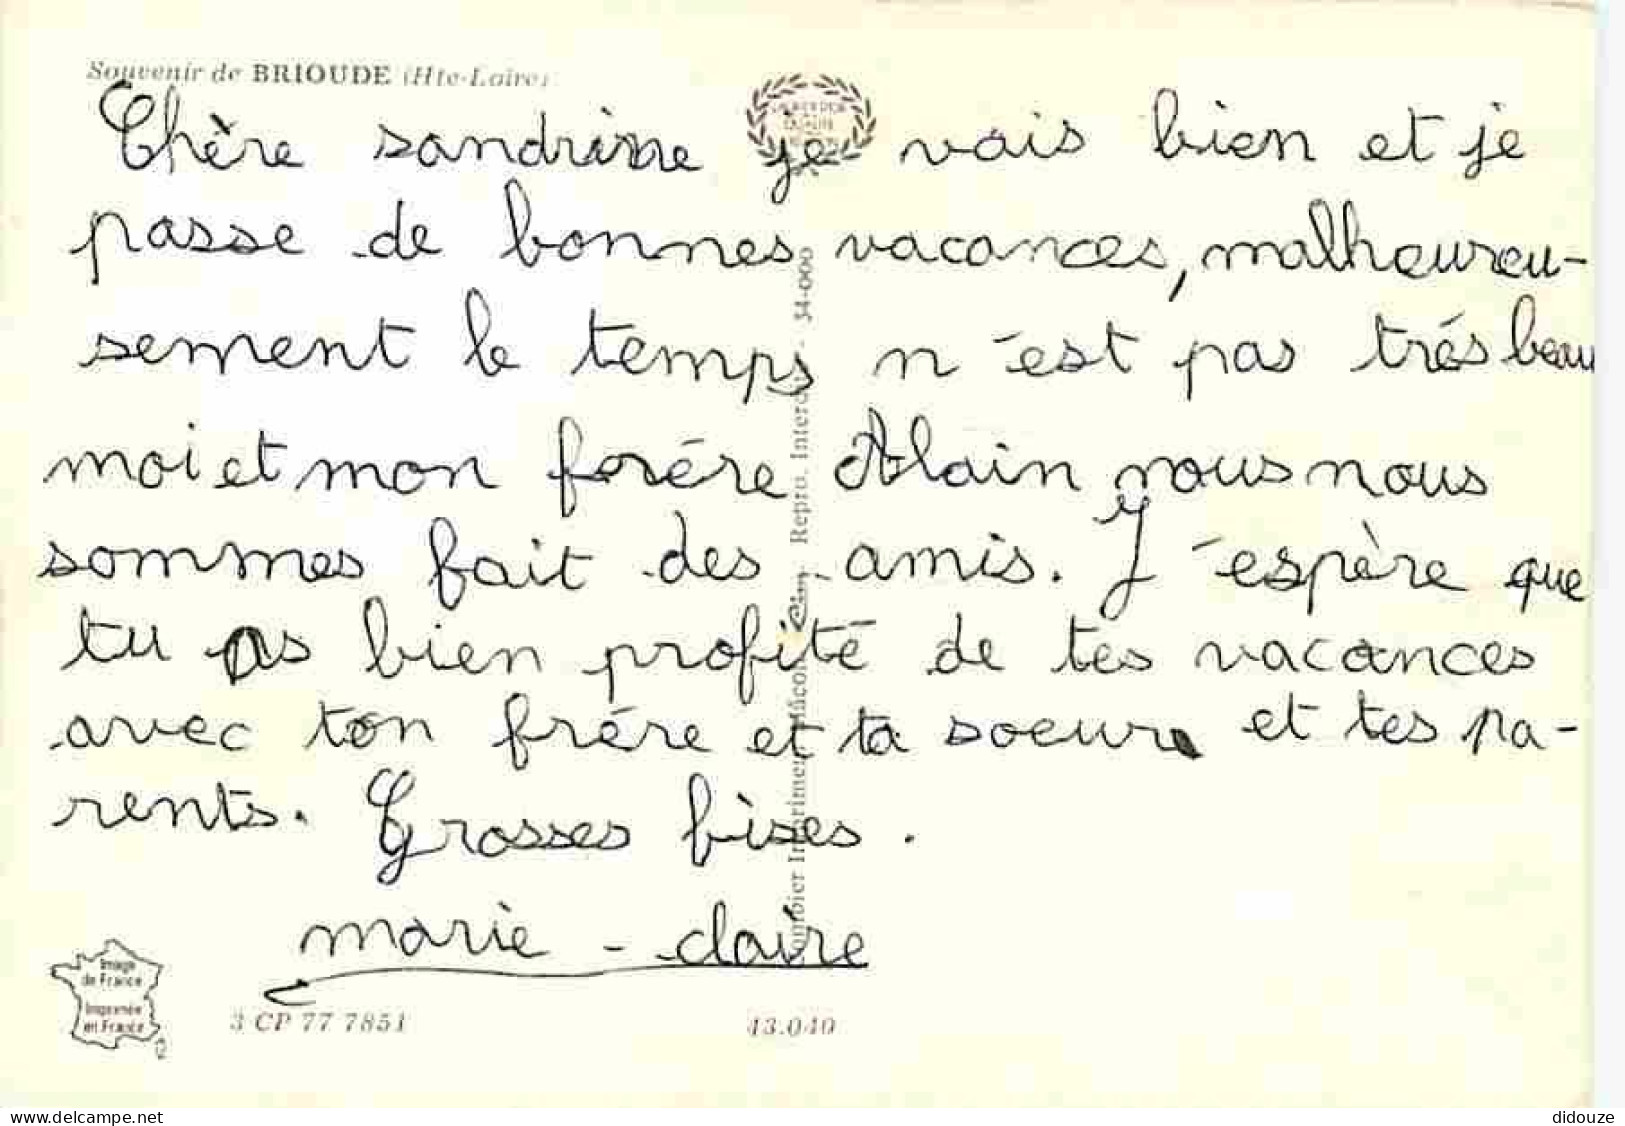 Souvenir de BRIOUDE (Hte-Loire)
Chère sandrine je vais bien et je
passe de bonnes vacances, malheureu-
sement le temps n'est pas trés beau
moi et mon frére Alain nous nous
sommes fait des amis. J'espère que
tu as bien profité de tes vacances
avec ton frére et ta soeur et tes pa-
rents. Grosses bises.
marie - claire
Combier Imprimeur Mâcon Cim Repro. Interd. - 34-000
Image
de France
Imprimée
en France
3 CP 77 7851
43.040
www.delcampe.net
didouze